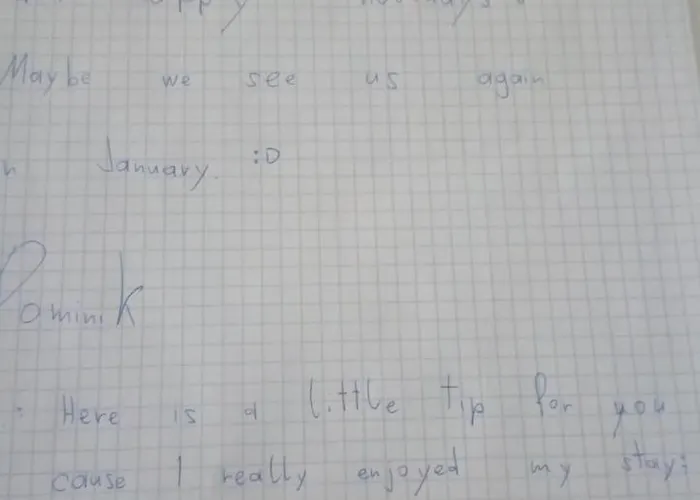 Maybe we see us again
January. :D
Dominik
Here is a little tip for you
cause I really enjoyed my stay;